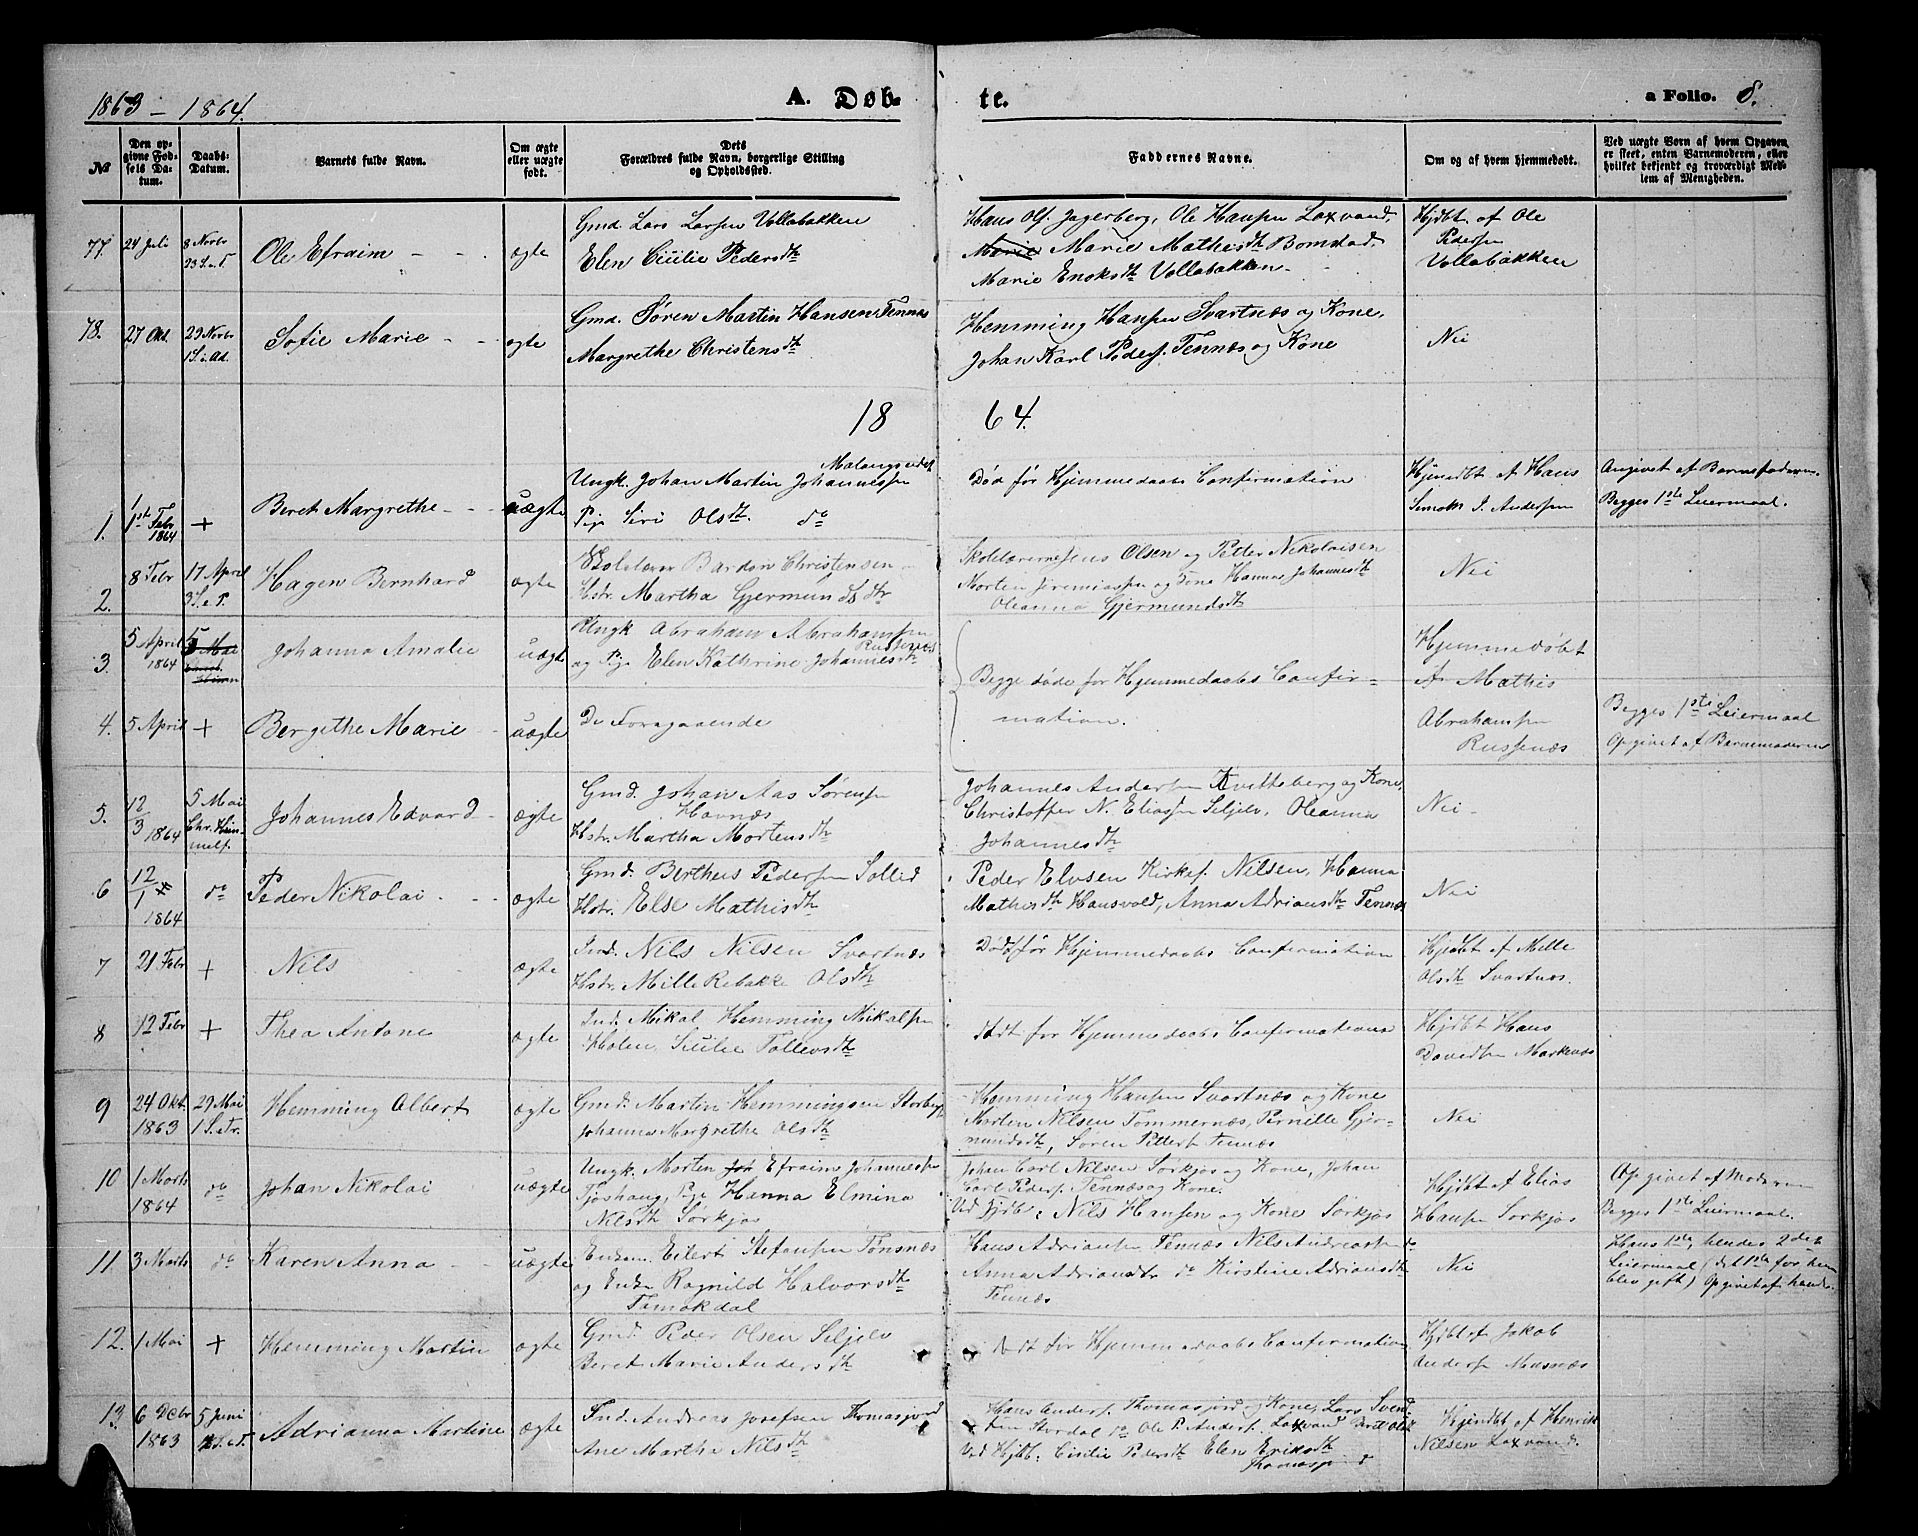 1863 - 1864.
A. Døb-
te.
a Folio. 8.
№
Den op-
givne Fød-
sels Da-
tum.
Daabs-
Datum.
Barnets fulde Navn.
Om ægte
eller uægte
født.
Dets
Forældres fulde Navn, borgerlige Stilling
og Opholdssted.
Faddernes Navne.
Om og af hvem hjemmedøbt.
Ved uægte Børn af hvem Opgaven
er skeet, enten Barnemoderen, eller
hvilket bekjendt og troværdigt Med-
lem af Menigheden.
77.
24 Juli
8 Novbr
23 S. e. T.
Ole Efraim
ægte
Gmd. Lars Larsen Vollabakken
Elen Cicilie Pedersdtr
Hans Ols. Jagerberg, Ole Hansen Laxvand,
Marie Marie Mathisdtr Bomstad
Marie Enoksdtr Vollabakken
Hjdbt. af Ole
Pedersen
Vollabakken
78.
27 Okt.
29 Novbr
1 S. i Ad.
Sofie Marie
ægte
Gmd. Søren Martin Hansen Tennæs
Margrethe Christensdtr
Hemming Hansen Svartnæs og Kone,
Johan Karl Peders. Tennæs og Kone
Nei
18 64.
1.
1st Febr
1864
+
Beret Margrethe
uægte
Malangseidet
Ungk. Johan Martin Johannessen
Pige Siri Olsdtr. do
Død før Hjemmedaabs Confirmation
Hjemdbt af Hans
Andersen
Angivet af Barnefaderen
Begges 1ste Leiermaal.
2.
8 Febr
17 April
3 S. e. P.
Hagen Bernhard
ægte
Bardon Christensen
Hstr. Martha Gjermundsdtr
Olsen og Petter Nikolaisen
Morten Jeremiassen og Kone Hanna Johannesdtr
Oleanna Gjermundsdtr
Nei
3.
5 April
1864
5 Mai
Johanna Amalie
uægte
Ungk Abraham Abrahamsen
Russenæs
og Pige Elen Kathrine Johannesdtr
Begge døde før Hjemmedaabs Confir-
mation.
Hjemmedøbt
Af Mathis
Abrahamsen
Russenæs
4.
5 April
+
Bergithe Marie
uægte
De Foregaaende
Begges 1ste Leiermaal
Opgivet af Barnemoderen
5.
12/3 1864
5 Mai
Chr. Him-
melf.
Johannes Edvard
ægte
Gmd. Johan Aas Sørensen
Havnæs
Hstr. Martha Mortensdtr
Johannes Andersen Kvitteberg og Kone,
Christoffer N. Eliassen Seljelv, Oleanna
Johannesdtr
Nei
6
12/1
1864
do
Peder Nikolai
ægte
Gmd. Bertheus Pedersen Sollid
Hstr. Else Mathisdtr
Peder Elvsen Kirkes. Nilsen, Hanna
Mathisdtr Hansvold, Anna Adriansdtr Tennæs
Nei
7
21 Febr
+
Nils
ægte
Ind. Nils Nilsen Svartnæs
Hstr. Mille Rebakke Olsdtr
Død før Hjemmedaabs Confirmation
Hjdbt af Mille
Olsdtr Svartnæs.
8
12 Febr
+
Thea Antone
ægte
Ind. Mikal Hemming Mikalsen
Holen, Sicilie Tollevsdtr
dødt før Hjemmedaabs Confirmation
Hjdbt Hans
Davidsen Markenæs
9
24 Okt
1863
29 Mai
1 S. e Tr.
Hemming Albert
ægte
Gmd. Martin Hemmingsen Storberg
Johanna Margrethe Olsdtr
Hemming Hansen Svartnæs og Kone
Morten Nilsen Tommernæs, Pernille Gjer-
mundsdtr, Søren Petters. Tennæs
Nei
10
1 Marts
1864
do
Johan Nikolai
uægte
Ungk. Morten Joh Efraim Johannessen
Tjoshaug, Pige Hanna Elmina
Nilsdtr Sørkjos
Johan Carl Nilsen Sørkjos og Kone, Johan
Carl Peders. Tennæs og Kone.
Ved Hjdb: Nils Hansen og Kone Sørkjos
Hjdbt af Elias
Hansen Sørkjos
Opgivet af Moderen
Begges 1ste Leiermaal.
11
3 Marts
do
Karen Anna
uægte
Enkem. Eilert Stefansen Tønsnæs
og Enke Ragnild Halvorsdtr
Tamokdal
Hans Adriansen Tennæs Nils Andreassen do
Anna Adriansdtr do Kirstine Adriansdtr
Tennæs
Nei
Hans 1ste, hendes 2det
Leiermaal (det 1ste før hun
blev gift) Opgivet af hende.
12.
1 Mai
+
Hemming Martin
ægte
Gmd. Peder Olsen Seljelv
Beret Marie Andersdtr
Dødt før Hjemmedaabs Confirmation
Hjdbt af Jakob
Andersen Masnæs
13.
6 Debr
1863
5 Juni
2 S. e T.
Adrianna Martine
ægte
Ind. Andreas Josefsen Thomasjord
Ane Martha Nilsdtr
Hans Anders. Thomasjord og Kone, Lars Svend-
sen Stordal do Ole P. Anders. Laxvand Berit Olsdtr
Ved Hjdb: Cicilie Pedersdtr Elen Eriksdtr
Thomasjord
Hjemdbt af Henrik
Nilsen Laxvand.